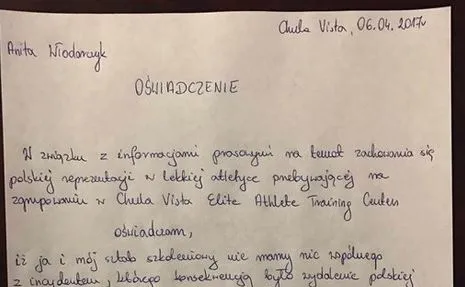 Chula Vista, 06.04.2017r
Anita Włodarczyk
OŚWIADCZENIE
W związku z informacjami prasowymi na temat zachowania się
polskiej reprezentacji w lekkiej atletyce przebywającej na
zgrupowaniu w Chula Vista Elite Athlete Training Center
oświadczam,
iż ja i mój sztab szkoleniowy nie mamy nic wspólnego
z incydentem, którego konsekwencją było wydalenie polskiej